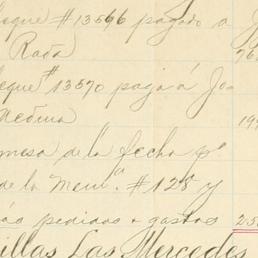 eque #13566 pagado a J
Rafa 76
eque #13570 paga á Jo
Medina 19
mesa de la fecha pº
de la Mem.ª #128 y
pedidos a gastos 2.5
illas Las Mercedes